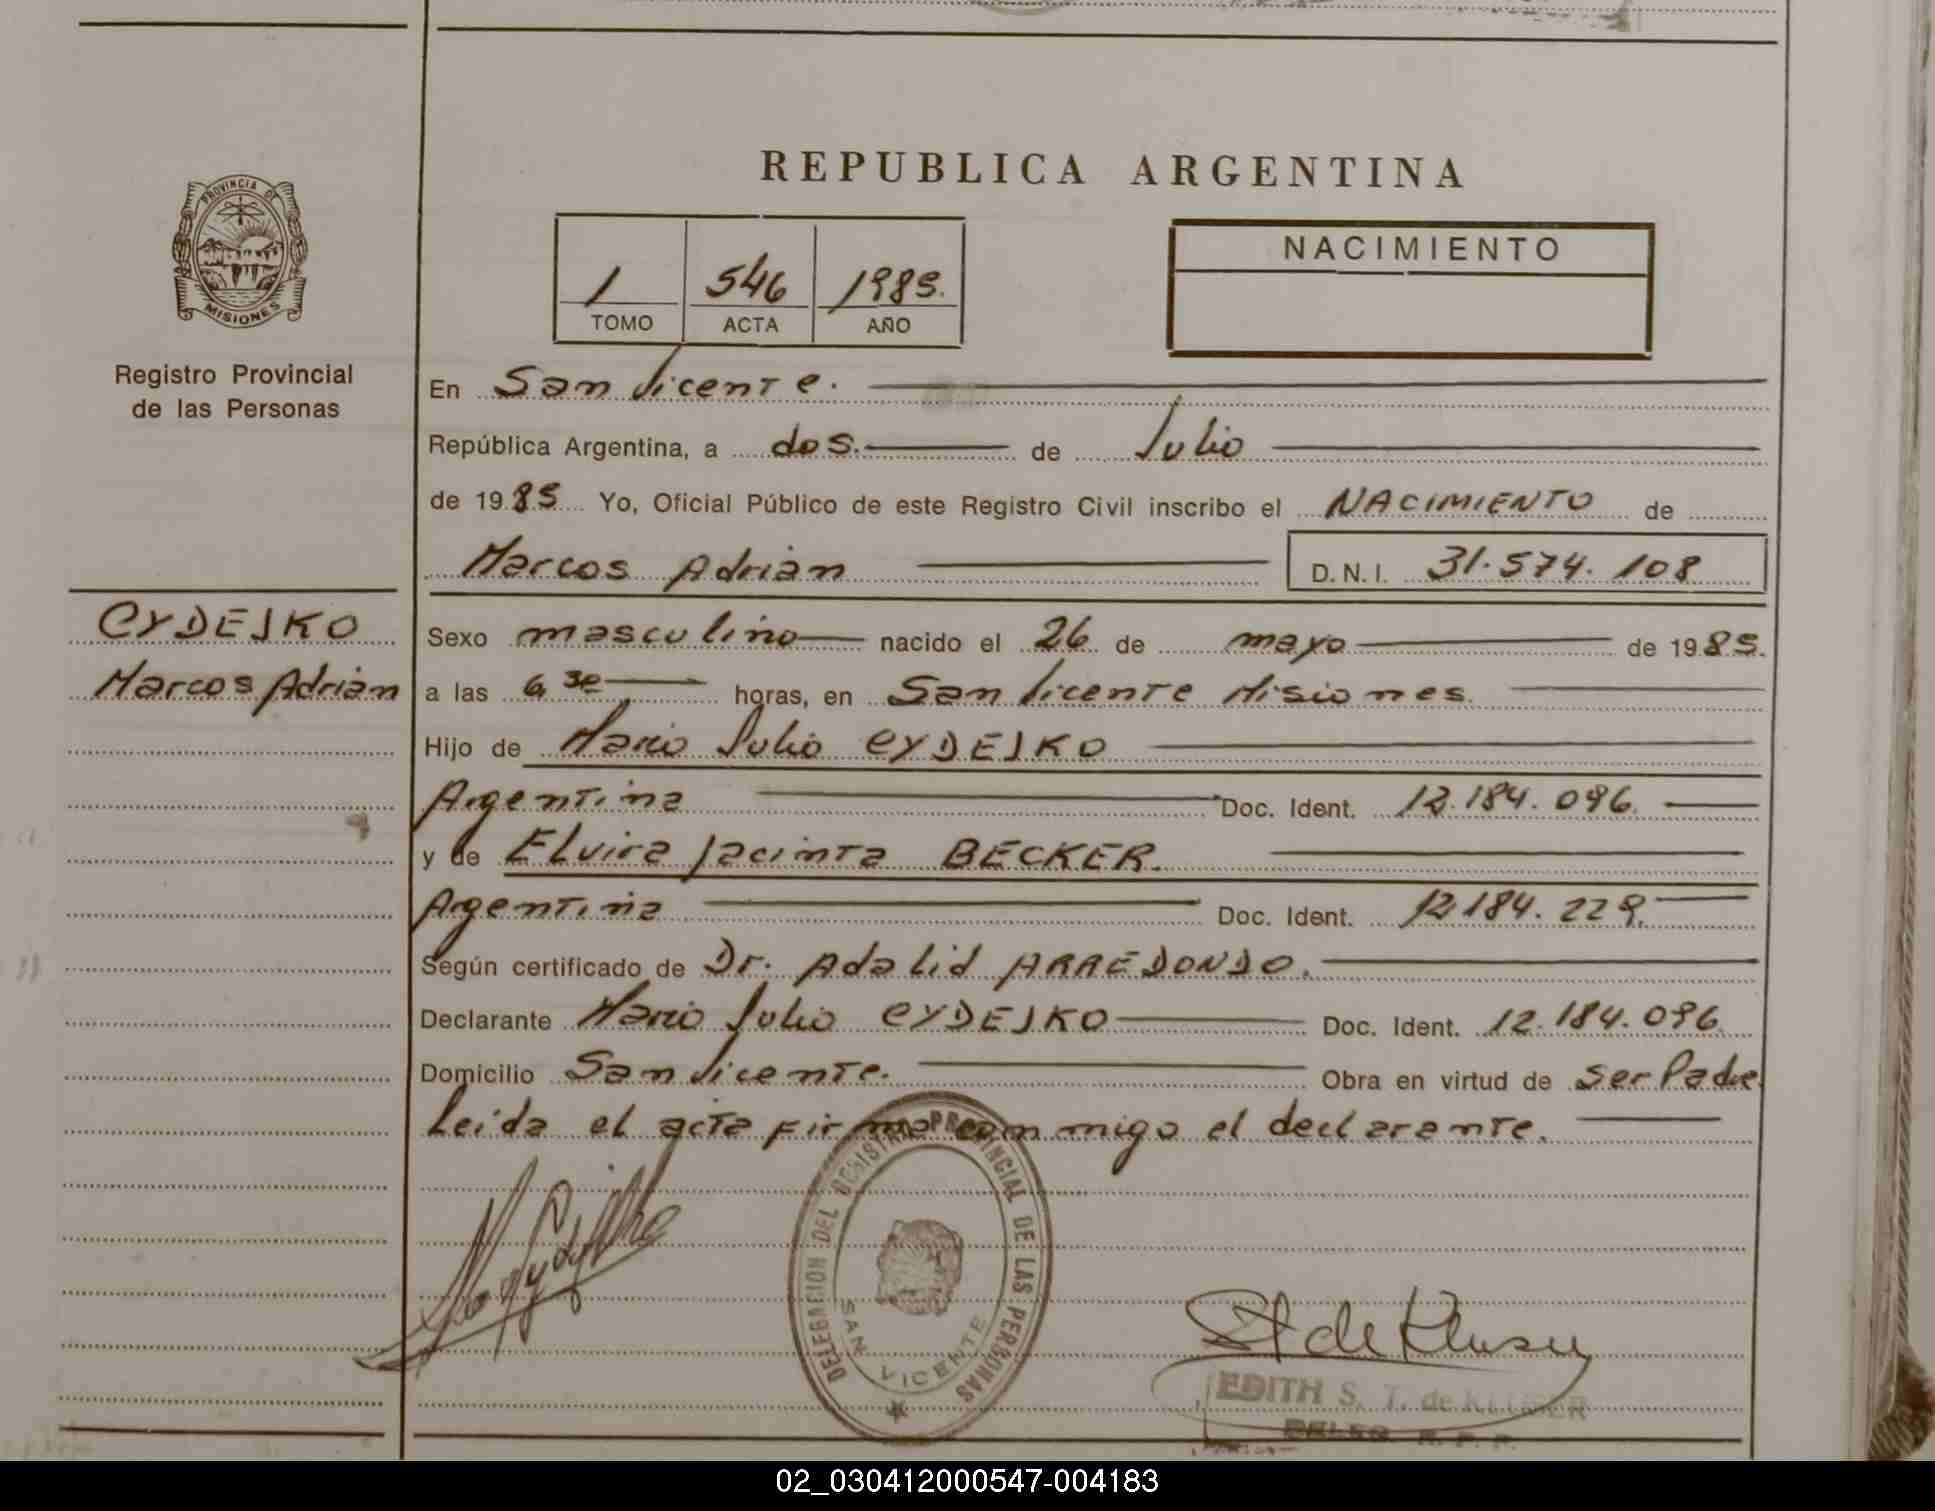 REPUBLICA ARGENTINA
PROVINCIA DE
MISIONES
Registro Provincial
de las Personas
1 546 1985.
TOMO ACTA AÑO
NACIMIENTO
En San Vicente.
República Argentina, a dos. de Julio
de 1985 Yo, Oficial Público de este Registro Civil inscribo el NACIMIENTO de
Marcos Adrián D.N.I. 31.574.108
CYDEJKO
Marcos Adrián
Sexo masculino nacido el 26 de mayo de 1985.
a las 6 30 horas, en San Vicente Misiones.
Hijo de Mario Julio CYDEJKO
Argentina Doc. Ident. 12.184.096.
y de Elvira Jacinta BECKER.
Argentina Doc. Ident. 12.184.229.
Según certificado de Dr. Adalid ARREDONDO.
Declarante Mario Julio CYDEJKO Doc. Ident. 12.184.096
Domicilio San Vicente. Obra en virtud de ser Padre
Leida el acta firma conmigo el declarante.
DELEGACION DEL REGISTRO PROVINCIAL DE LAS PERSONAS
SAN VICENTE
EDITH S. T. de
DELEG. R. P. P.
02_030412000547-004183